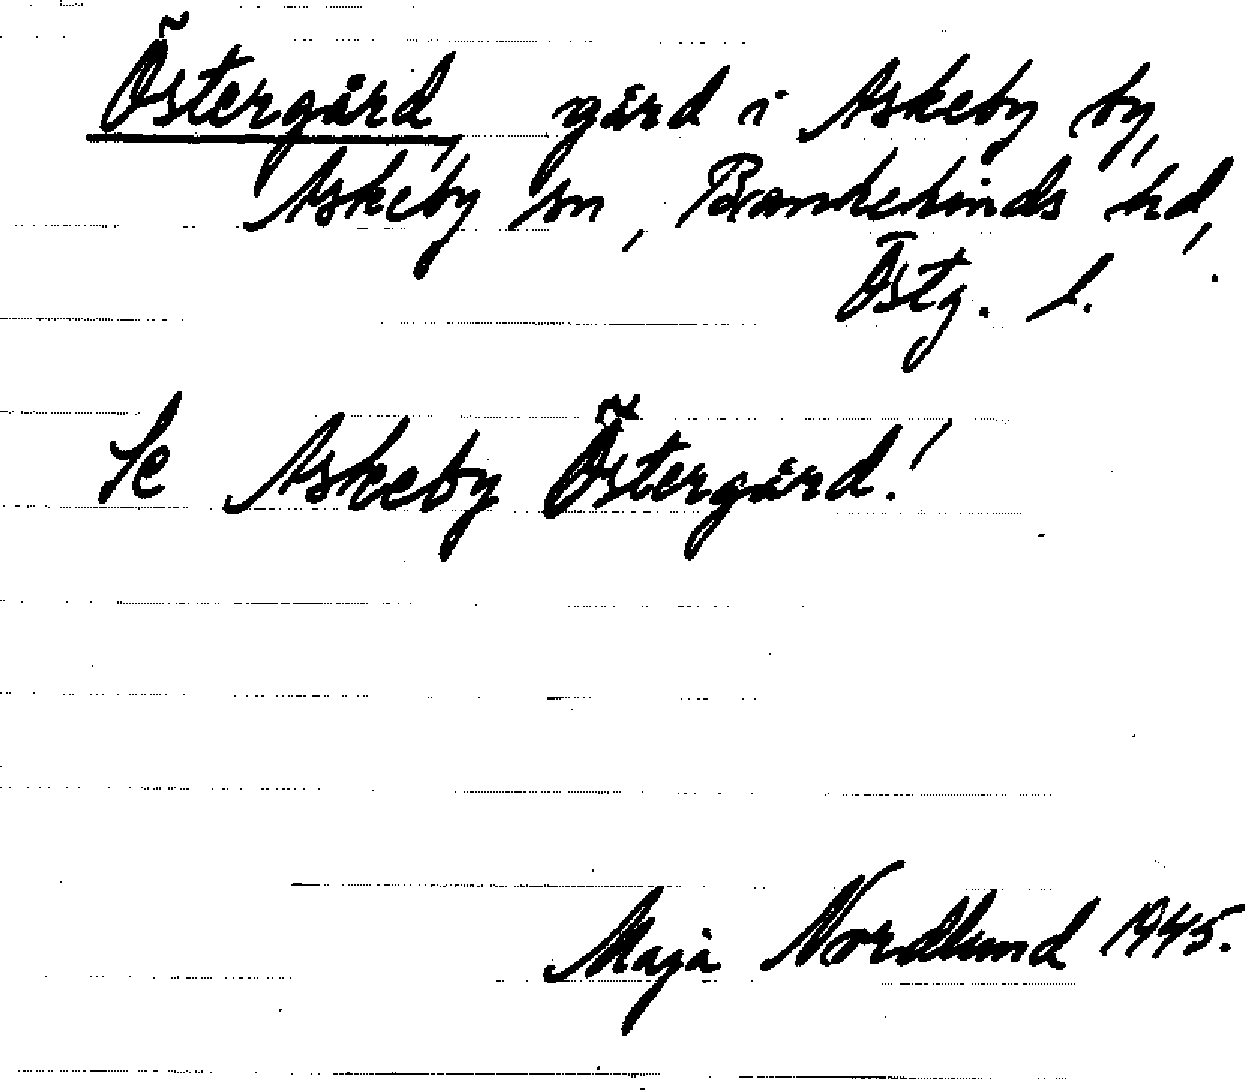 Östergård, gård i Askeby by,
Askeby sn, Bankekinds hd,
Östg. l.
Se Askeby Östergård!
Maja Nordlund 1945.